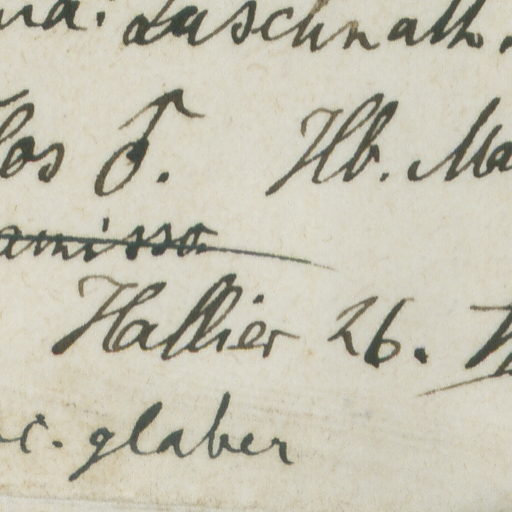 Laschnath.
los ♂. Hb. Ma
amissa
Hallier 26.
c. glaber